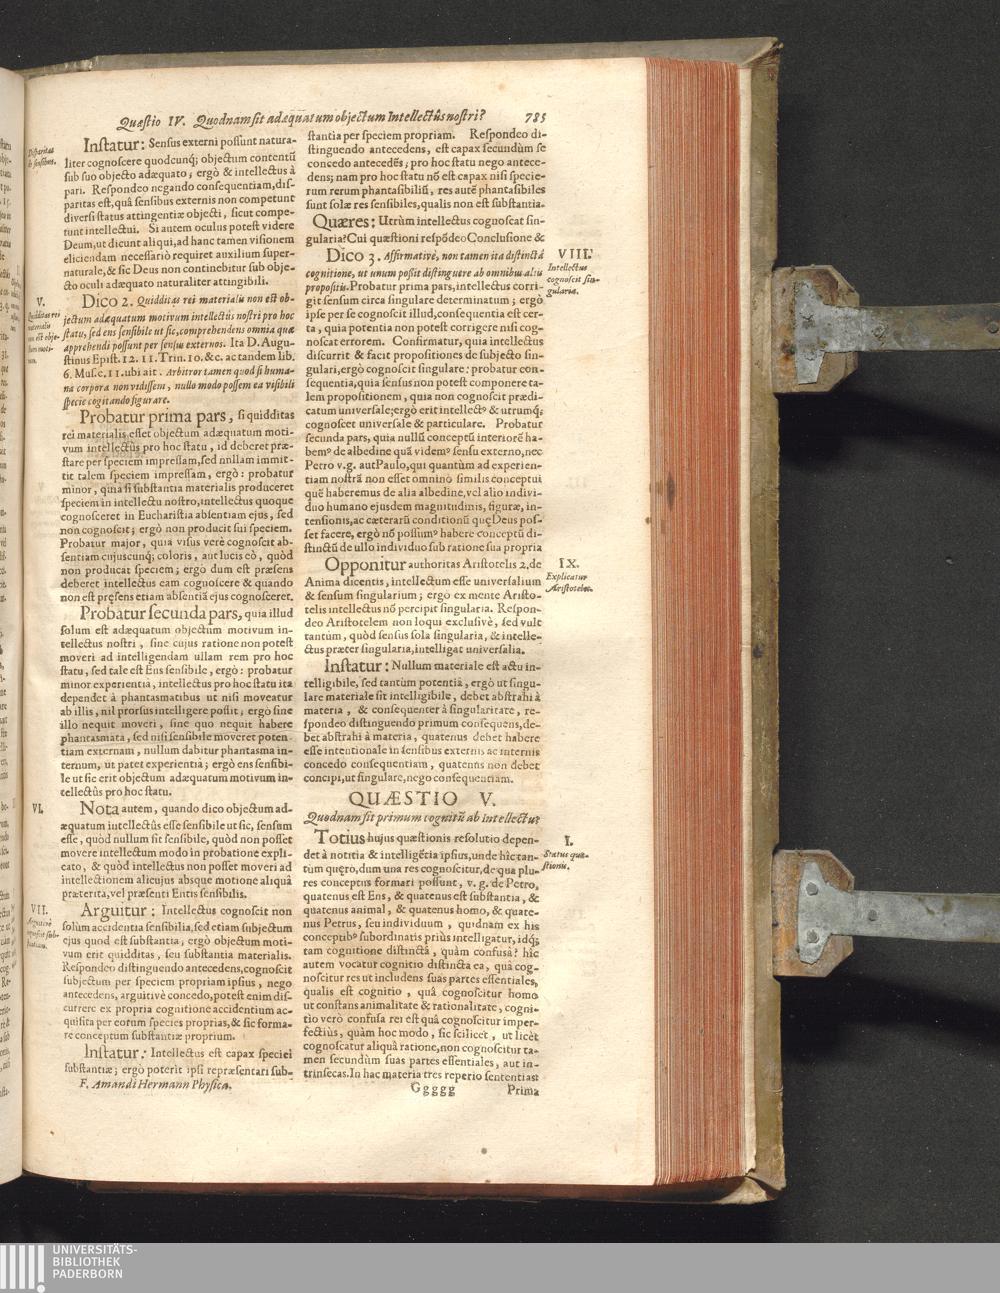 Quæstio IV. Quodnam sit adæquatum objectum Intellectûs nostri? 785
Disparitas
de sensibus.
Instatur: Sensus externi possunt natura-
liter cognoscere quodcunq; objectum contentũ
sub suo objecto adæquato; ergò & intellectus à
pari. Respondeo negando consequentiam, dis-
paritas est, quâ sensibus externis non competunt
diversi status attingentiæ objecti, sicut compe-
tunt intellectui. Si autem oculus potest videre
Deum, ut dicunt aliqui, ad hanc tamen visionem
eliciendam necessariò requiret auxilium super-
naturale, & sic Deus non continebitur sub obje-
cto oculi adæquato naturaliter attingibili.
V.
Quidditas rei
materialis
non est obje-
ctum moti-
vum.
Dico 2. Quidditas rei materialis non est ob-
jectum adæquatum motivum intellectûs nostri pro hoc
statu, sed ens sensibile ut sic, comprehendens omnia quæ
apprehendi possunt per sensus externos. Ita D. Augu-
stinus Epist. 12. 11. Trin. 10. &c. ac tandem lib.
6. Mus. c. 11. ubi ait. Arbitror tamen quod si huma-
na corpora non vidissem, nullo modo possem ea visibili
specie cogitando figurare.
Probatur prima pars, si quidditas
rei materialis esset objectum adæquatum moti-
vum intellectûs pro hoc statu, id deberet præ-
stare per speciem impressam, sed nullam immit-
tit talem speciem impressam, ergò: probatur
minor, quia si substantia materialis produceret
speciem in intellectu nostro, intellectus quoque
cognosceret in Eucharistia absentiam ejus, sed
non cognoscit; ergò non producit sui speciem.
Probatur major, quia visus verè cognoscit ab-
sentiam cujuscunq; coloris, aut lucis eò, quòd
non producat speciem; ergò dum est præsens
deberet intellectus eam cognoscere & quando
non est pręsens etiam absentiã ejus cognosceret.
Probatur secunda pars, quia illud
solum est adæquatum objectum motivum in-
tellectûs nostri, sine cujus ratione non potest
moveri ad intelligendam ullam rem pro hoc
statu, sed tale est Ens sensibile, ergò: probatur
minor experientiâ, intellectus pro hoc statu ita
dependet à phantasmatibus ut nisi moveatur
ab illis, nil prorsus intelligere possit; ergò sine
illo nequit moveri, sine quo nequit habere
phantasmata, sed nisi sensibile moveret poten-
tiam externam, nullum dabitur phantasma in-
ternum, ut patet experientiâ; ergò ens sensibi-
le ut sic erit objectum adæquatum motivum in-
tellectûs pro hoc statu.
VI.
Nota autem, quando dico objectum ad-
æquatum intellectûs esse sensibile ut sic, sensum
esse, quòd nullum sit sensibile, quòd non posset
movere intellectum modo in probatione expli-
cato, & quòd intellectus non posset moveri ad
intellectionem alicujus absque motione aliquâ
præterita, vel præsenti Entis sensibilis.
VII.
Arguitur: Intellectus cognoscit non
solùm accidentia sensibilia, sed etiam subjectum
ejus quod est substantia, ergò objectum moti-
vum erit quidditas, seu substantia materialis.
Respondeo distinguendo antecedens, cognoscit
subjectum per speciem propriam ipsius, nego
antecedens, arguitivè concedo, potest enim dis-
currere ex propria cognitione accidentium ac-
quisita per eorum species proprias, & sic forma-
re conceptum substantiæ proprium.
Instatur: Intellectus est capax speciei
substantiæ; ergò poterit ipsi repræsentari sub-
F. Amandi Hermann Physica.
stantia per speciem propriam. Respondeo di-
stinguendo antecedens, est capax secundùm se
concedo antecedẽs; pro hoc statu nego antece-
dens; nam pro hoc statu nõ est capax nisi specie-
rum rerum phantasibiliũ, res autẽ phantasibiles
sunt solæ res sensibiles, qualis non est substantia.
Quæres: Utrùm intellectus cognoscat sin-
gularia? Cui quæstioni respõdeo Conclusione &
VIII.
Intellectus
cognoscit sin-
gularia.
Dico 3. Affirmativè, non tamen ita distinctâ
cognitione, ut unum possit distinguere ab omnibus aliis
propositis. Probatur prima pars, intellectus corri-
git sensum circa singulare determinatum; ergò
ipse per se cognoscit illud, consequentia est cer-
ta, quia potentia non potest corrigere nisi cog-
noscat errorem. Confirmatur, quia intellectus
discurrit & facit propositiones de subjecto sin-
gulari, ergò cognoscit singulare: probatur con-
sequentia, quia sensus non potest componere ta-
lem propositionem, quia non cognoscit prædi-
catum universale; ergò erit intellectꝰ & utrumq;
cognoscet universale & particulare. Probatur
secunda pars, quia nullũ conceptũ interiorẽ ha-
bemꝰ de albedine quã videmꝰ sensu externo, nec
Petro v. g. aut Paulo, qui quantùm ad experien-
tiam nostrã non esset omninò similis conceptui
quẽ haberemus de alia albedine, vel alio indivi-
duo humano ejusdem magnitudinis, figuræ, in-
tensionis, ac cæterarũ conditionũ quę Deus pos-
set facere, ergò nõ possumꝰ habere conceptũ di-
stinctũ de ullo individuo sub ratione sua propria
IX.
Explicatur
Aristoteles.
Opponitur authoritas Aristotelis 2. de
Anima dicentis, intellectum esse universalium
& sensum singularium; ergò ex mente Aristo-
telis intellectus nõ percipit singularia. Respon-
deo Aristotelem non loqui exclusivè, sed vult
tantùm, quòd sensus sola singularia, & intelle-
ctus præter singularia, intelligat universalia.
Instatur: Nullum materiale est actu in-
telligibile, sed tantùm potentiâ, ergò ut singu-
lare materiale sit intelligibile, debet abstrahi à
materia, & consequenter à singularitate, re-
spondeo distinguendo primum consequens, de-
bet abstrahi à materia, quatenus debet habere
esse intentionale in sensibus externis ac internis
concedo consequentiam, quatenus non debet
concipi, ut singulare, nego consequentiam.
QUÆSTIO V.
Quodnam sit primum cognitũ ab intellectu?
I.
Status quæ-
stionis.
Totius hujus quæstionis resolutio depen-
det à notitia & intelligẽtia ipsius, unde hîc tan-
tùm quęro, dum una res cognoscitur, de qua plu-
res conceptus formari possunt, v. g. de Petro,
quatenus est Ens, & quatenus est substantia, &
quatenus animal, & quatenus homo, & quate-
nus Petrus, seu individuum, quidnam ex his
conceptibꝰ subordinatis priùs intelligatur, idq;
tam cognitione distinctâ, quàm confusâ? hîc
autem vocatur cognitio distincta ea, quâ cog-
noscitur res ut includens suas partes essentiales,
qualis est cognitio, quâ cognoscitur homo
ut constans animalitate & rationalitate, cogni-
tio verò confusa rei est quâ cognoscitur imper-
fectiùs, quàm hoc modo, sic scilicet, ut licèt
cognoscatur aliquâ ratione, non cognoscitur ta-
men secundùm suas partes essentiales, aut in-
trinsecas. In hac materia tres reperio sententias:
Ggggg Prima
UNIVERSITÄTS-
BIBLIOTHEK
PADERBORN